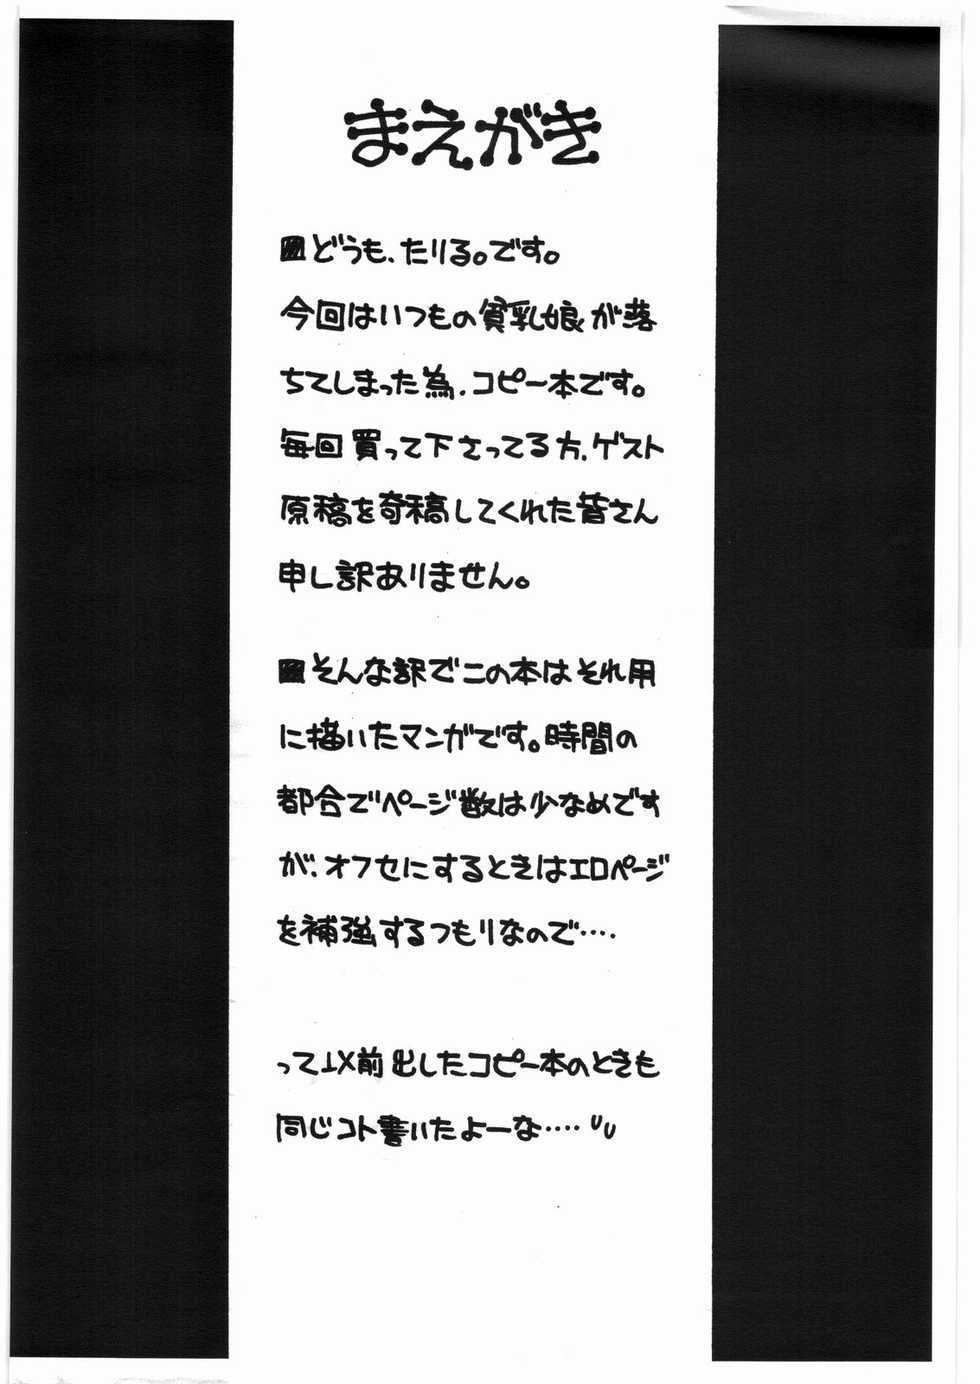 まえがき
■どうも、たりる。です。
今回はいつもの貧乳娘が落
ちてしまった為、コピー本です。
毎回買って下さってる方、ゲスト
原稿を奇稿してくれた皆さん
申し訳ありません。
■そんな訳でこの本はそれ用
に描いたマンガです。時間の
都合でページ数は少なめです
が、オフセにするときはエロページ
を補強するつもりなので‥‥
って以前出したコピー本のときも
同じコト書いたよーな‥‥